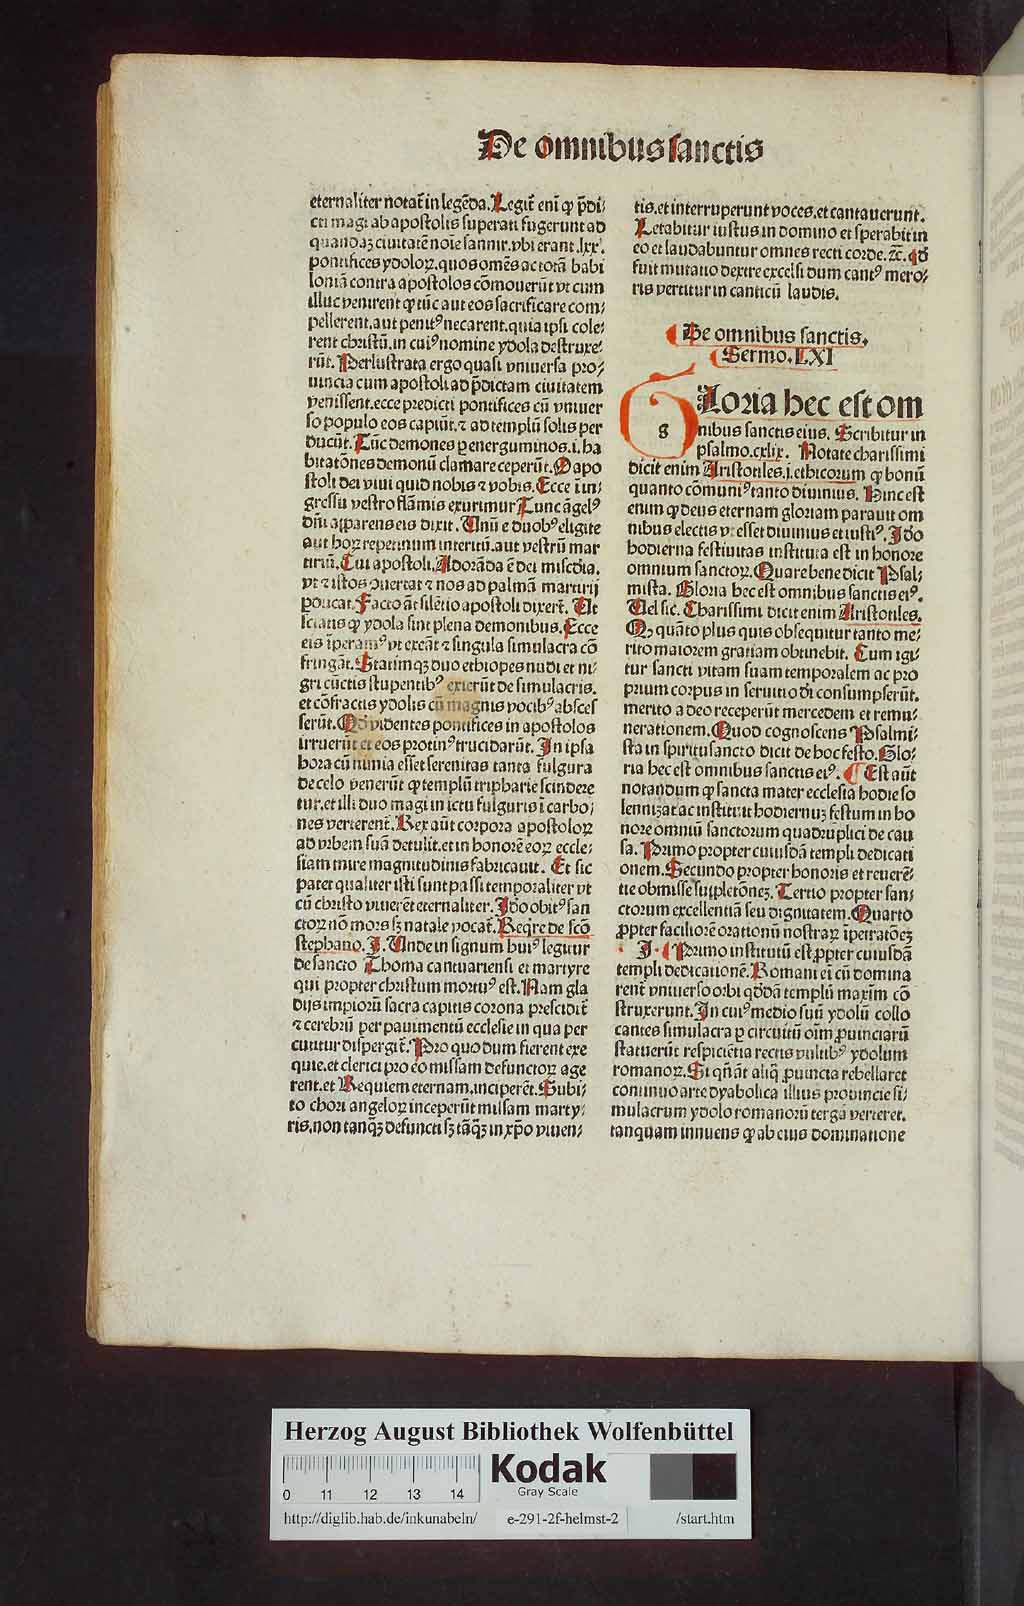 De omnibus sanctis
eternaliter notat̄ in legēda. Legit̄ eni ꝙ p̄di⸗
cti magi ab apostolis superati fugerunt ad
quandaꝫ ciuitatē noīe sannir. vbi erant .lxx.
pontifices ydoloꝝ. quos omēs ac totā babi
loniā contra apostolos cōmouerūt vt cum
illuc venirent ꝙ tūc aut eos sacrificare com⸗
pellerent. aut penitꝰ necarent. quia ipsi cole⸗
rent christū. in cuiꝰ nomine ydola destruxe⸗
rūt. Perlustrata ergo quasi vniuersa pro⸗
uincia cum apostoli ad p̄dictam ciuitatem
venissent. ecce predicti pontifices cū vniuer
so populo eos capiūt. ⁊ ad templū solis per
ducūt. Tūc demones ꝑ energuminos .i. ha
bitatōnes demonū clamare ceperūt. O apo
stoli dei viui quid nobis ⁊ vobis. Ecce ī in⸗
gressu vestro flāmis exurimur Tunc āgelꝰ
dn̄i apparens eis dixit. Unū e duobꝰ eligite
aut hoꝝ repentinum interitū. aut vestrū mar
tiriū. Cui apostoli. Adorāda ē dei mīscdia.
vt ⁊ istos ꝯuertat ⁊ nos ad palmā martirij
ꝑducat. Facto āt silētio apostoli dixerūt. Ut
sciatis ꝙ ydola sint plena demonibus. Ecce
eis īperamꝰ vt exeāt ⁊ singula simulacra cō
fringāt. Statimqꝫ duo ethiopes nudi et ni⸗
gri cūctis stupentibꝰ exierūt de simulacris.
et cōfractis ydolis cū magnis vocibꝰ absces
serūt. Qd̄ videntes pontifices in apostolos
irruerūt et eos protinꝰ trucidarūt. In ipsa
hora cū nimia esset serenitas tanta fulgura
de celo venerūt ꝙ templū tripharie scindere
tur. et illi duo magi in ictu fulguris ī carbo⸗
nes verterent̄. Rex aūt corpora apostoloꝝ
ad vrbem suā detulit. et in honorē eoꝝ eccle⸗
siam mire magnitudinis fabricauit. Et sic
patet qualiter isti sunt passi temporaliter vt
cū christo viuerēt eternaliter. Idō obitꝰ san
ctoꝝ nō mors sꝫ natale vocat̄. Reqͥre de scō
stephano. I. Unde in signum huiꝰ legitur
de sancto Thoma cantuariensi et martyre
qui propter christum mortuꝰ est. Nam gla
dijs impiorū sacra capitis corona prescidit̄
⁊ cerebrū per pauimentū ecclesie in qua per
cutitur dispergit̄. Pro quo dum fierent exe
quie. et clerici pro eo missam defunctoꝝ age
rent. et Requiem eternam. inciperēt. Subi⸗
to chori angeloꝝ inceperūt missam marty⸗
ris. non tanqꝫ defuncti sꝫ tāqꝫ in xp̄o viuen⸗
tis. et interruperunt voces. et cantauerunt.
Letabitur iustus in domino et sperabit in
eo et laudabuntur omnes recti corde. ⁊c. Qd̄
fuit mutatio dextre excelsi dum cantꝰ mero⸗
ris vertitur in canticū laudis.
De omnibus sanctis.
Sermo. LXI
g
Gloria hec est om
nibus sanctis eius. Scribitur in
psalmo. cxlix. Notate charissimi
dicit enim Aristotiles. i. ethicorum ꝙ bonū
quanto cōmuniꝰ tanto diuinius. Hinc est
enim ꝙ deus eternam gloriam parauit om
nibus electis vt esset diuinius et iustiꝰ. Idō
hodierna festiuitas instituta est in honore
omnium sanctoꝝ. Quare bene dicit Psal⸗
mista. Gloria hec est omnibus sanctis eiꝰ.
Uel sic. Charissimi dicit enim Aristotiles.
Qꝙ quāto plus quis obsequitur tanto me⸗
rito maiorem gratiam obtinebit. Cum igi⸗
tur sancti vitam suam temporalem ac pro
prium corpus in seruitio di consumpserūt.
merito a deo receperūt mercedem et remu⸗
nerationem. Quod cognoscens Psalmi⸗
sta in spiritusancto dicit de hoc festo. Glo⸗
ria hec est omnibus sanctis eiꝰ. ¶ Est aūt
notandum ꝙ sancta mater ecclesia hodie so
lennizat ac instituit hodiernuꝫ festum in ho
nore omniū sanctorum quadruplici de cau
sa. Primo propter cuiusdā templi dedicati
onem. Secundo propter honoris et reuerē⸗
tie obmisse suppletōneꝫ. Tertio propter san⸗
ctorum excellentiā seu dignitatem. Quarto
ꝓpter faciliorē orationū nostraꝝ īpetratōeꝫ
I. ¶ Primo institutū est ꝓpter cuiusdā
templi dedicationē. Romani eī cū domina
rent̄ vniuerso orbi qd̄dā templū maxim cō
struxerunt. In cuiꝰ medio suū ydolū collo
cantes simulacra ꝑ circuitū oīm ꝓuinciarū
statuerūt respiciētia rectis vultibꝰ ydolum
romanoꝝ. Si qn̄ āt aliq̄ ꝓuincia rebellaret
continuo arte dyabolica illius prouincie si⸗
mulacrum ydolo romanorū terga verteret.
tanquam innuens ꝙ ab eius dominatione
Herzog August Bibliothek Wolfenbüttel
0 11 12 13 14
Kodak
Gray Scale
http://diglib.hab.de/inkunabeln/ e-291-2f-helmst-2 /start.htm